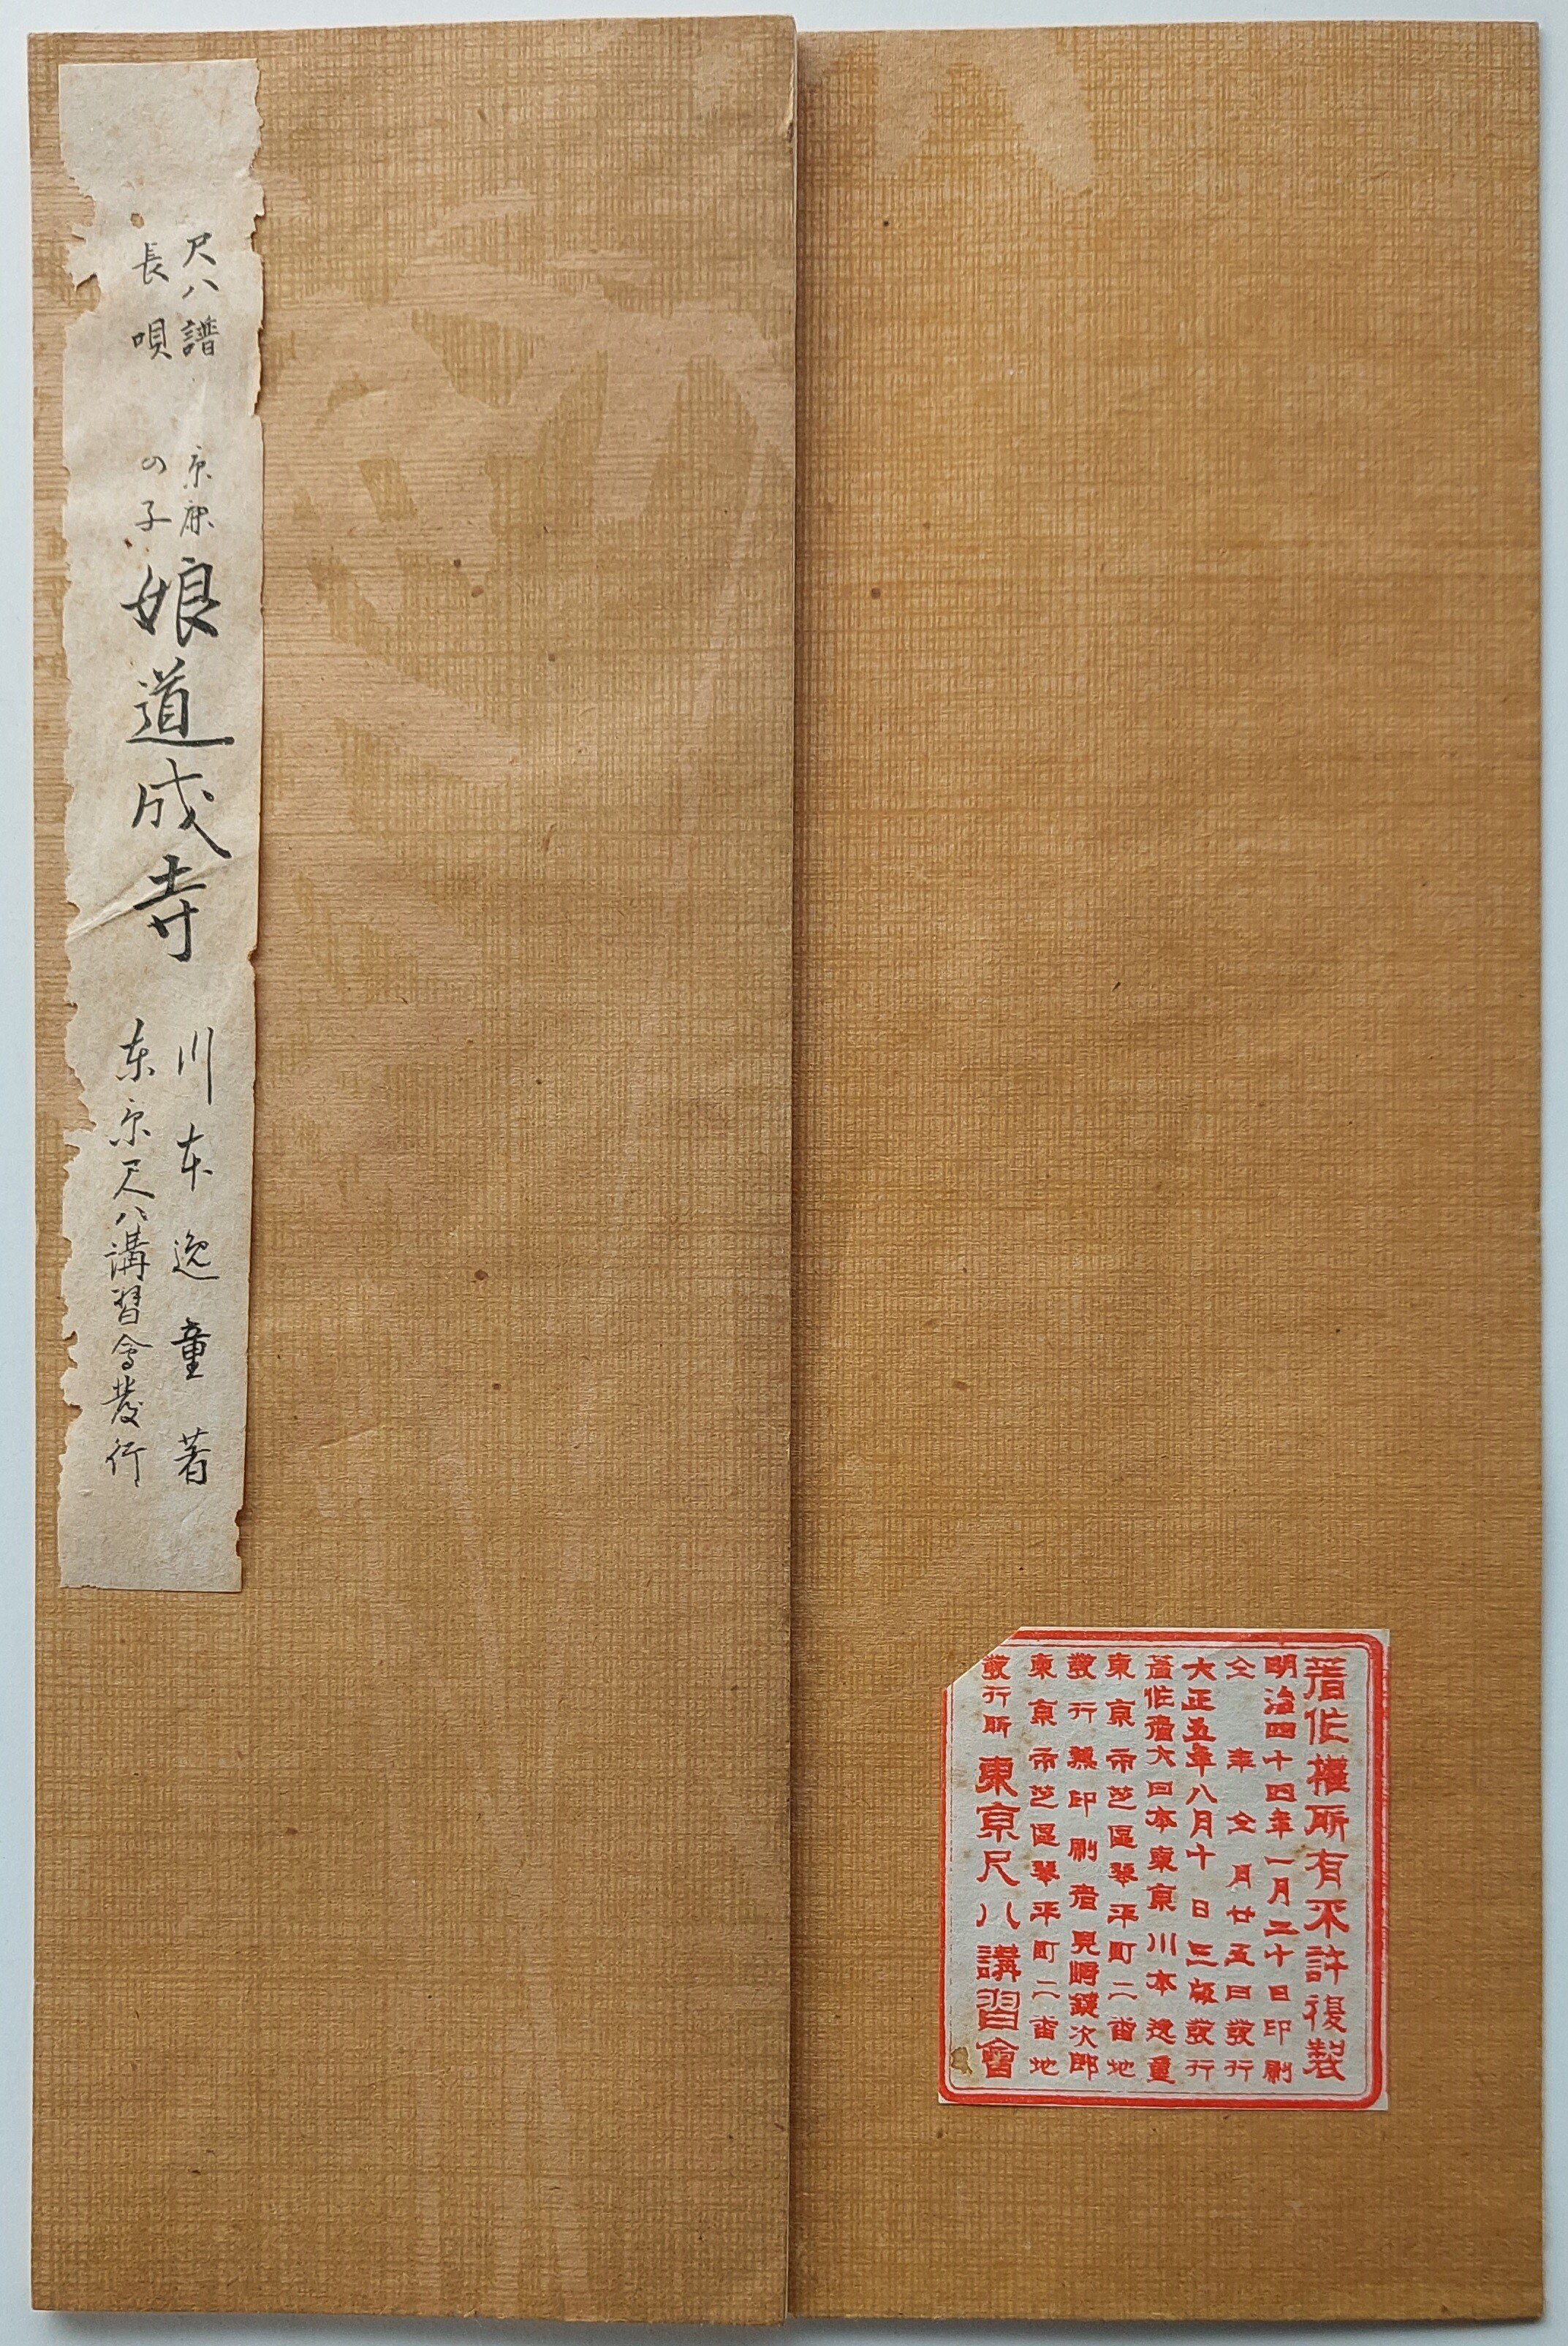 尺八譜
長唄
京鹿
の子
娘道成寺
川本逸童著
東京尺八講習會發行
著作權所有不許復製
明治四十四年一月二十日印刷
仝年仝月廿五日發行
大正五年八月十日三版發行
著作者大日本東京川本逸童
東京市芝區琴平町二番地
發行兼印刷者 次郎
東京市芝區琴平町二番地
發行所 東京尺八講習會